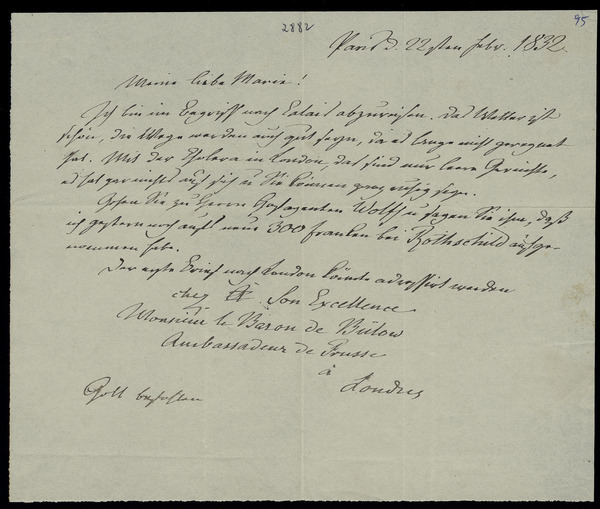 2882
95
Paris d. 22sten Febr. 1832.
Meine liebe Marie!
Ich bin im Begriff nach Calais abzureisen. Das Wetter ist
schön, die Wege werden auch gut seyn, da es lange nicht geregnet
hat. Mit der Cholera in London, das sind nur leere Gerüchte,
es hat gar nichts auf sich u Sie können ganz ruhig seyn.
Gehen Sie zu Herrn Hofagenten Wolff u sagen Sie ihm, daß
ich gestern noch aufs neue 300 Franken bei Rothschild aufge-
nommen habe.
Der erste Brief nach London könnte adressirt werden
chez Son Excellence
Monsieur le Baron de Bülow
Ambassadeur de Prusse
à
Londres
Gott befohlen